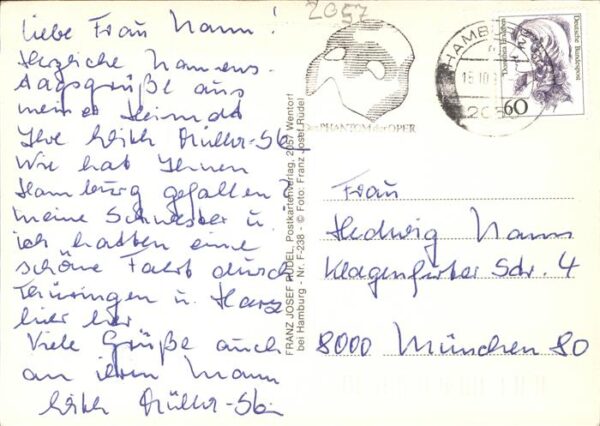 2057
Liebe Frau Nann!
Herzliche Namens-
tagsgrüße aus
meiner Heimat
Ihre Müller-
Wie hat Ihnen
Hamburg gefallen?
Meine Schwester u.
ich hatten eine
schöne Fahrt durch
Thüringen u. Harz
hier her
Viele Grüße auch
an ihren Mann
Müller-
FRANZ JOSEF RÜDEL, Postkartenverlag, 2057 Wentorf
bei Hamburg - Nr. F-238 - © Foto: Franz Josef Rüdel
Das PHANTOM der OPER
HAMBURG
15.10.
Deutsche Bundespost
60
Frau
Hedwig Nann
Klagenfurter Str. 4
8000 München 80